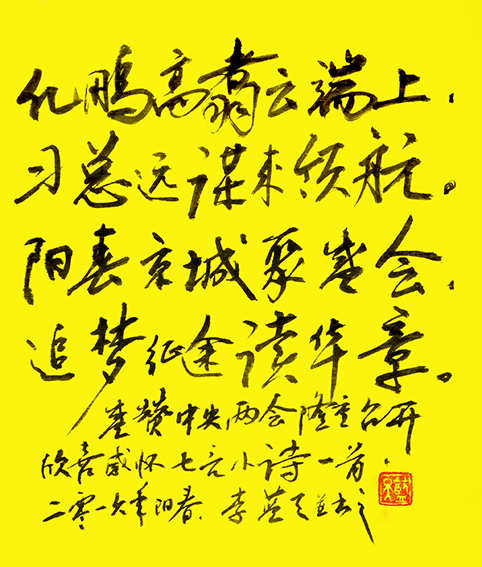 化鹏高翥云端上，
习总远谋来领航。
阳春京城聚盛会，
追梦征途读华章。
盛赞中央两会隆重召开
欣喜感怀七言小诗一首。
二零一六年阳春，李英天并书之